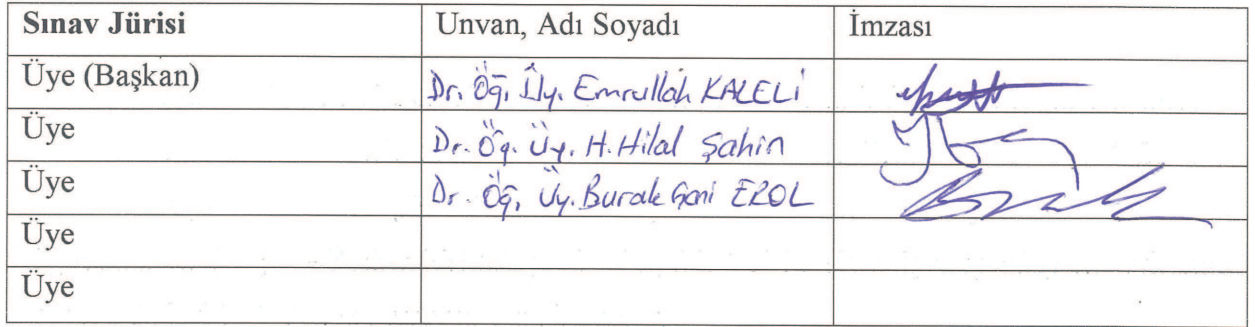 Sınav Jürisi Unvan, Adı Soyadı İmzası
Üye (Başkan) Dr. Öğ. Üy. Emrullah KALELİ
Üye Dr. Öğ. Üy. H. Hilal Şahin
Üye Dr. Öğ. Üy. Burak Gani EROL
Üye
Üye